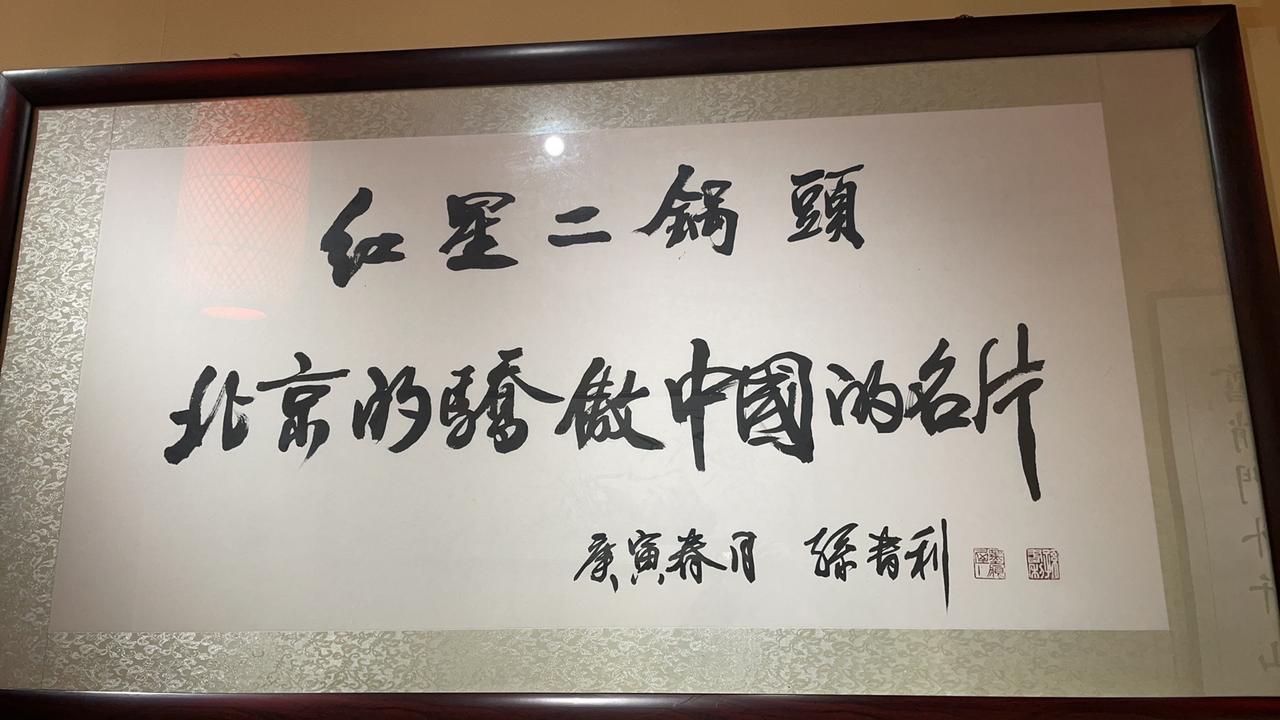 红星二鍋頭
北京的驕傲中國的名片
庚寅春月 孫書利